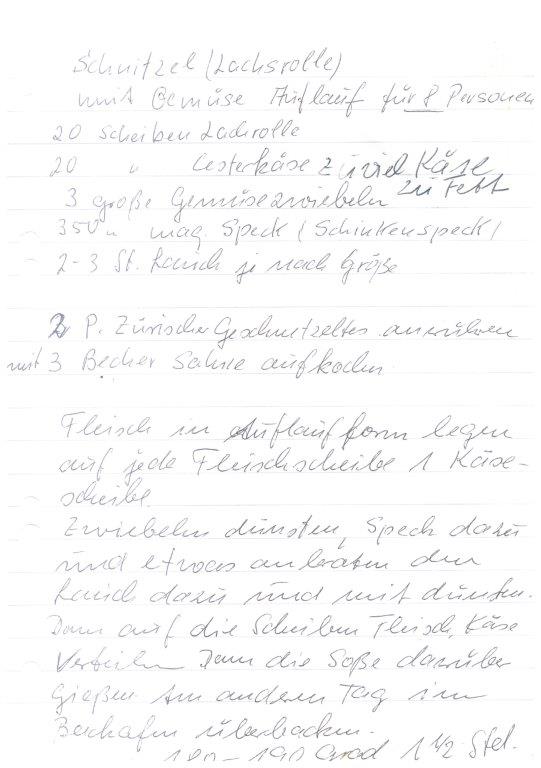 Schnitzel (Lachsrolle)
mit Gemüse Auflauf für 8 Personen
20 Scheiben Lachrolle
20 " Cesterkäse zuviel Käse
zu Fett
3 große Gemüsezwiebeln
350 " mag. Speck (Schinkenspeck)
2-3 St. Lauch je nach Größe
2 P. Züricher Geschnetzeltes anrühren
mit 3 Becher Sahne aufkochen
Fleisch in Auflaufform legen
auf jede Fleischscheibe 1 Käse-
scheibe.
Zwiebeln dünsten, Speck dazu
und etwas anbraten den
Lauch dazu und mit dünsten.
Dann auf die Scheiben Fleisch, Käse
verteilen Dann die Soße darüber
gießen Am andern Tag im
Backofen überbacken.
180-190 Grad 1 1/2 Std.